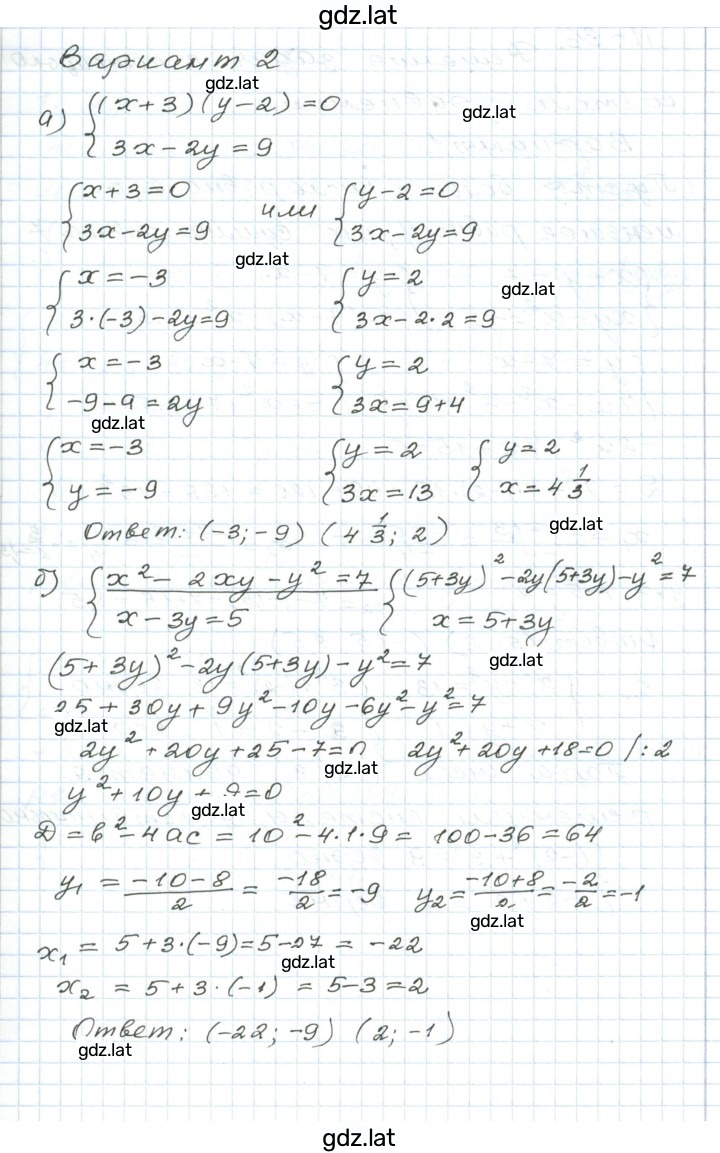 gdz.lat
Вариант 2
gdz.lat
а) { (x+3)(y-2)=0
gdz.lat
3x-2y=9
{ x+3=0 или { y-2=0
3x-2y=9 3x-2y=9
gdz.lat
{ x=-3 { y=2
gdz.lat
3·(-3)-2y=9 3x-2·2=9
{ x=-3 { y=2
-9-9=2y 3x=9+4
gdz.lat
{ x=-3 { y=2 { y=2
y=-9 3x=13 x=4 1/3
Ответ: (-3;-9) (4 1/3; 2)
gdz.lat
б) { x²-2xy-y²=7 { (5+3y)²-2y(5+3y)-y²=7
x-3y=5 x=5+3y
(5+3y)²-2y(5+3y)-y²=7
gdz.lat
25+30y+9y²-10y-6y²-y²=7
gdz.lat
2y²+20y+25-7=0 2y²+20y+18=0 /:2
gdz.lat
y²+10y+9=0
gdz.lat
D=b²-4ac=10²-4·1·9=100-36=64
y₁=(-10-8)/2=-18/2=-9 y₂=(-10+8)/2=-2/2=-1
gdz.lat
x₁=5+3·(-9)=5-27=-22
gdz.lat
x₂=5+3·(-1)=5-3=2
Ответ: (-22;-9) (2;-1)
gdz.lat
gdz.lat